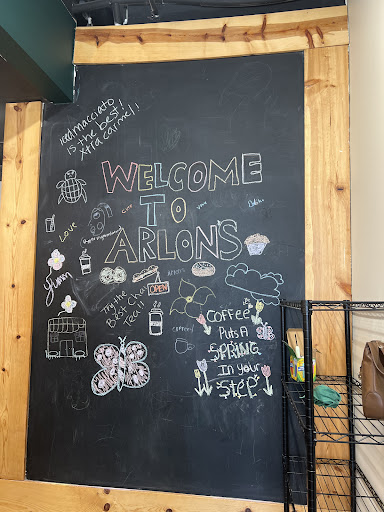 iced macciato
is the best!
Xtra carmel!
WELCOME
TO
ARLON'S
Love
Yumm
OPEN
Try the
Best Chai
Tea
coffee!
Coffee
Puts A
SPRING
In your
Step